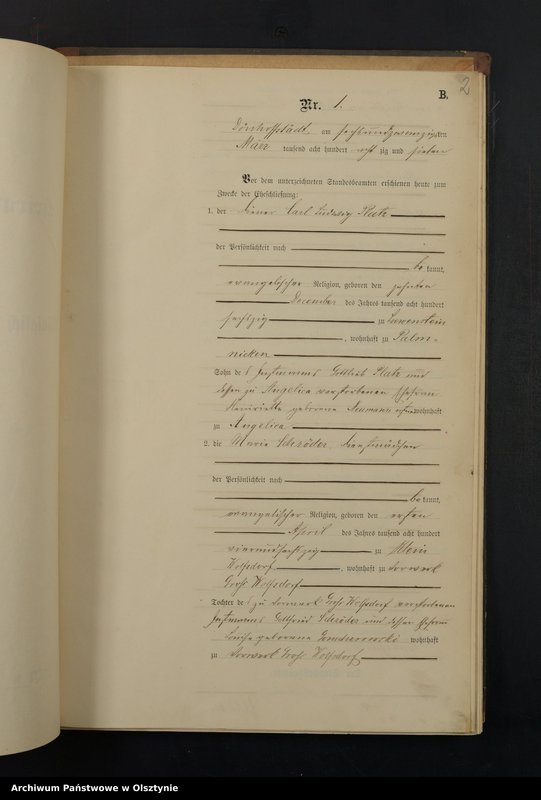 2
B.
Nr. 1.
Dönhoffstädt, am sechsundzwanzigsten
März tausend acht hundert acht zig und sieben
Vor dem unterzeichneten Standesbeamten erschienen heute zum
Zwecke der Eheschließung:
1. der Diener Carl Ludwig Platz
der Persönlichkeit nach
be kannt,
evangelischer Religion, geboren den zehnten
December des Jahres tausend acht hundert
sechszig zu Löwenstein
, wohnhaft zu Palm-
nicken
Sohn des Instmanns Gottlieb Platz und
dessen zu Angelica verstorbenen Ehefrau
Henriette geborene Neumann wohnhaft
zu Angelica
2. die Marie Schröder, Dienstmädchen
der Persönlichkeit nach
be kannt,
evangelischer Religion, geboren den ersten
April des Jahres tausend acht hundert
vierundsechszig zu Klein
Wolfsdorf, wohnhaft zu Vorwerk
Groß Wolfsdorf
Tochter des zu Vorwerk Groß Wolfsdorf verstorbenen
Instmanns Gottfried Schröder und dessen Ehefrau
Louise geborene wohnhaft
zu Vorwerk Groß Wolfsdorf
Archiwum Państwowe w Olsztynie